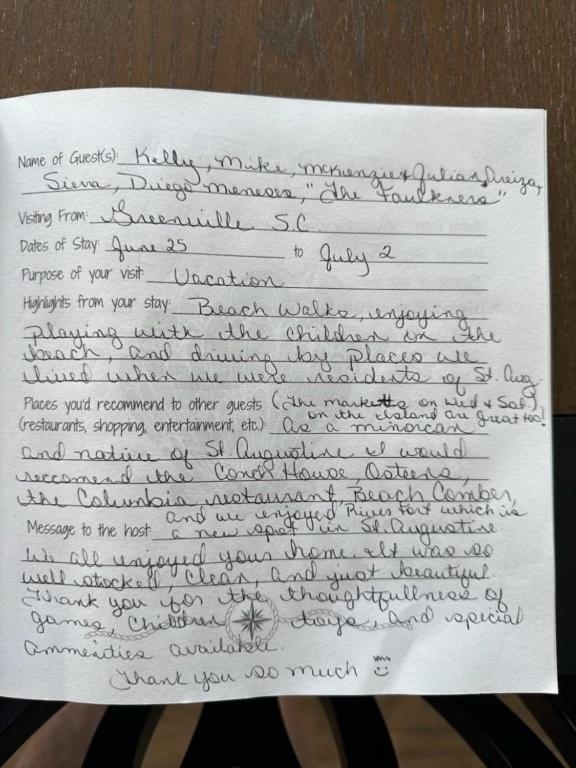 Name of Guest(s): Kelly, Mike, McKenzie & Julian, Dreiza,
Siera, Diego Meneses, "The Faulkners"
Visiting From: Greenville S.C.
Dates of Stay: June 25 to July 2
Purpose of your visit: Vacation
Highlights from your stay: Beach Walks, enjoying
playing with the children on the
beach, and driving by places we
lived when we were residents of St. Aug.
Places you'd recommend to other guests (The markets on Wed & Sat.)
on the island are great too!
(restaurants, shopping, entertainment, etc.): As a minorcan
and native of St. Augustine I would
reccomend the Conch House, Osteens,
the Columbia restaurant, Beach Comber,
and we enjoyed Rivers Fort which is
Message to the host: a new spot in St. Augustine.
We all enjoyed your home. It was so
well stocked, clean, and just beautiful.
Thank you for the thoughtfullness of
games, Children toys, and special
ammenities available.
Thank you so much